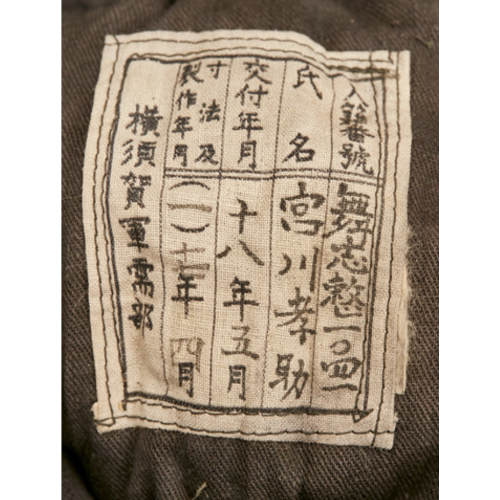 入籍番號 舞志整一〇四一
氏名 宮川孝助
交付年月 十八年五月
寸法及製作年月 (一)十七年四月
橫須賀軍需部